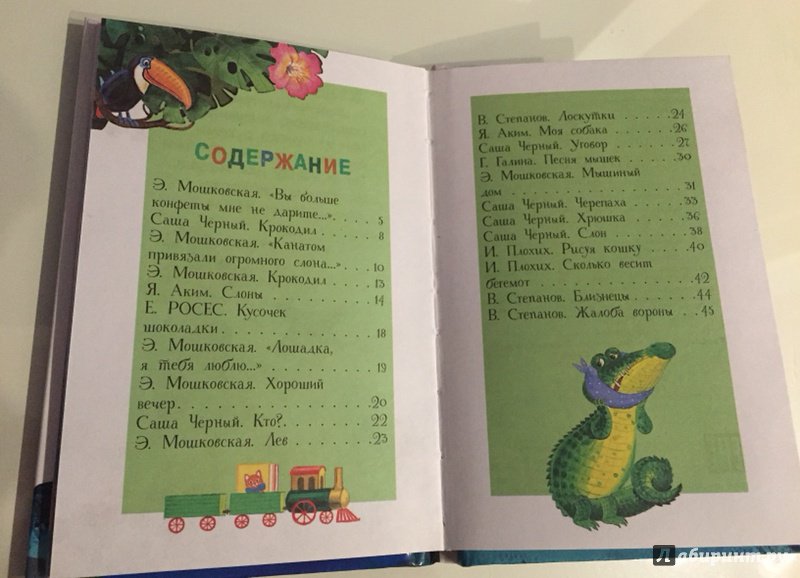 СОДЕРЖАНИЕ
Э. Мошковская. «Вы больше
конфеты мне не дарите...». . . . . 5
Саша Черный. Крокодил . . . . . 8
Э. Мошковская. «Канатом
привязали огромного слона...» . . . 10
Э. Мошковская. Крокодил . . . . 13
Я. Аким. Слоны . . . . . . . . . 14
Е. РОСЕС. Кусочек
шоколадки . . . . . . . . . . . . 18
Э. Мошковская. «Лошадка,
я тебя люблю...» . . . . . . . . . 19
Э. Мошковская. Хороший
вечер. . . . . . . . . . . . . . . 20
Саша Черный. Кто?. . . . . . . . 22
Э. Мошковская. Лев . . . . . . . 23
В. Степанов. Лоскутки . . . . .24
Я. Аким. Моя собака . . . . . . 26
Саша Черный. Уговор . . . . . . 27
Г. Галина. Песня мышек . . . . 30
Э. Мошковская. Мышиный
дом . . . . . . . . . . . . . . 31
Саша Черный. Черепаха . . . . . 33
Саша Черный. Хрюшка . . . . . 36
Саша Черный. Слон . . . . . . . 38
И. Плохих. Рисуя кошку . . . . 40
И. Плохих. Сколько весит
бегемот . . . . . . . . . . . . .42
В. Степанов. Близнецы . . . . . 44
В. Степанов. Жалоба вороны . . 45
Лабиринт.ру